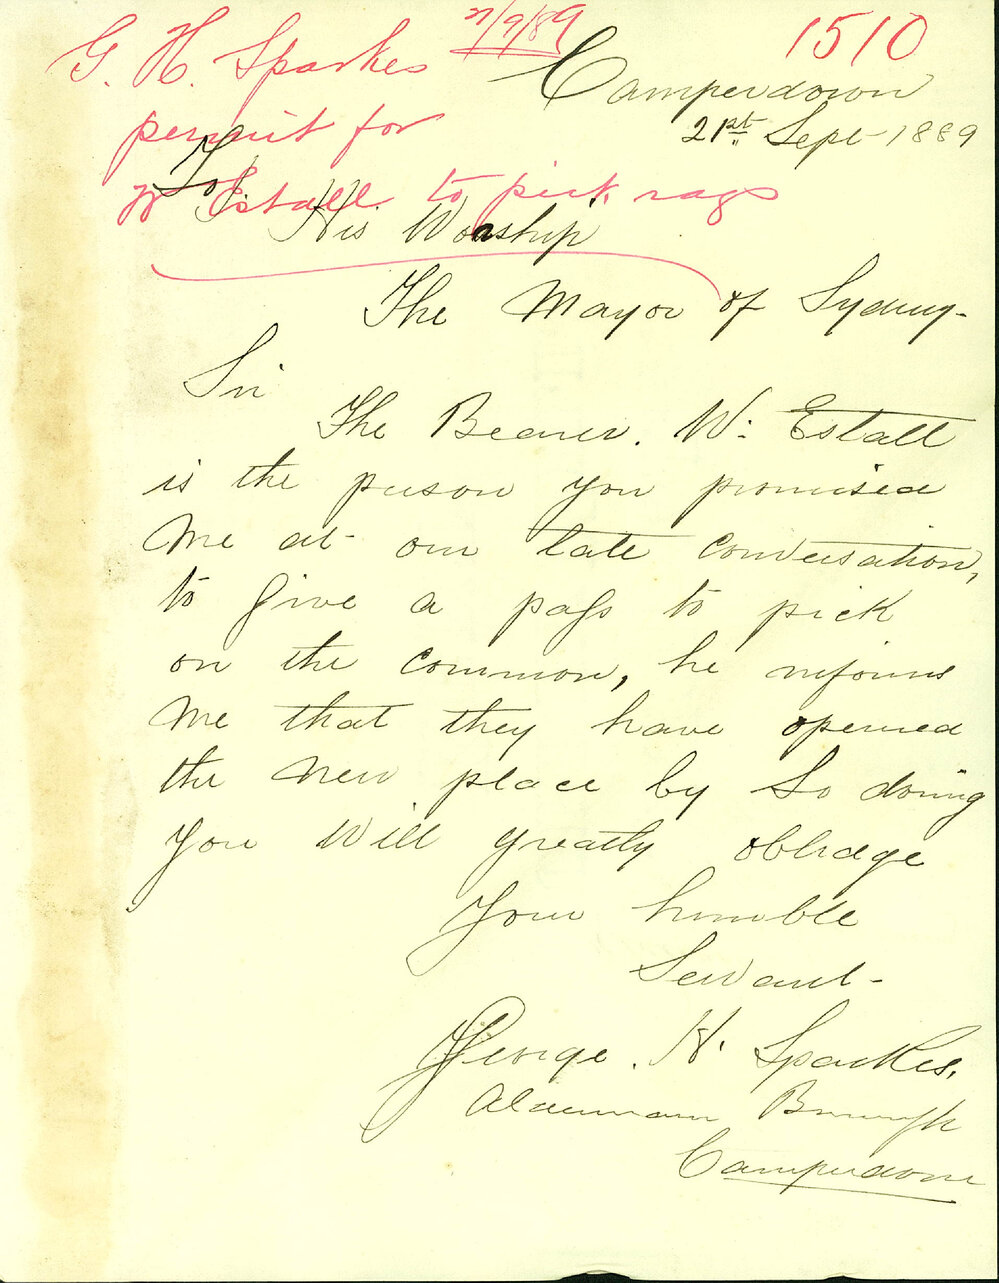 G. H. Sparkes
permit for
W Estall to pick rags
/9/89
1510
Camperdown
21st Sept 1889
To
His Worship
The Mayor of Sydney-
Sir
The Bearer. W: Estall
is the person you promised
Me at our late conversation,
to give a paſs to pick
on the common, he informs
Me that they have opened
the New place by So doing
you Will greatly oblidge
Your humble
Servant-
George. H. Sparkes.
Alderman Borough
Camperdown